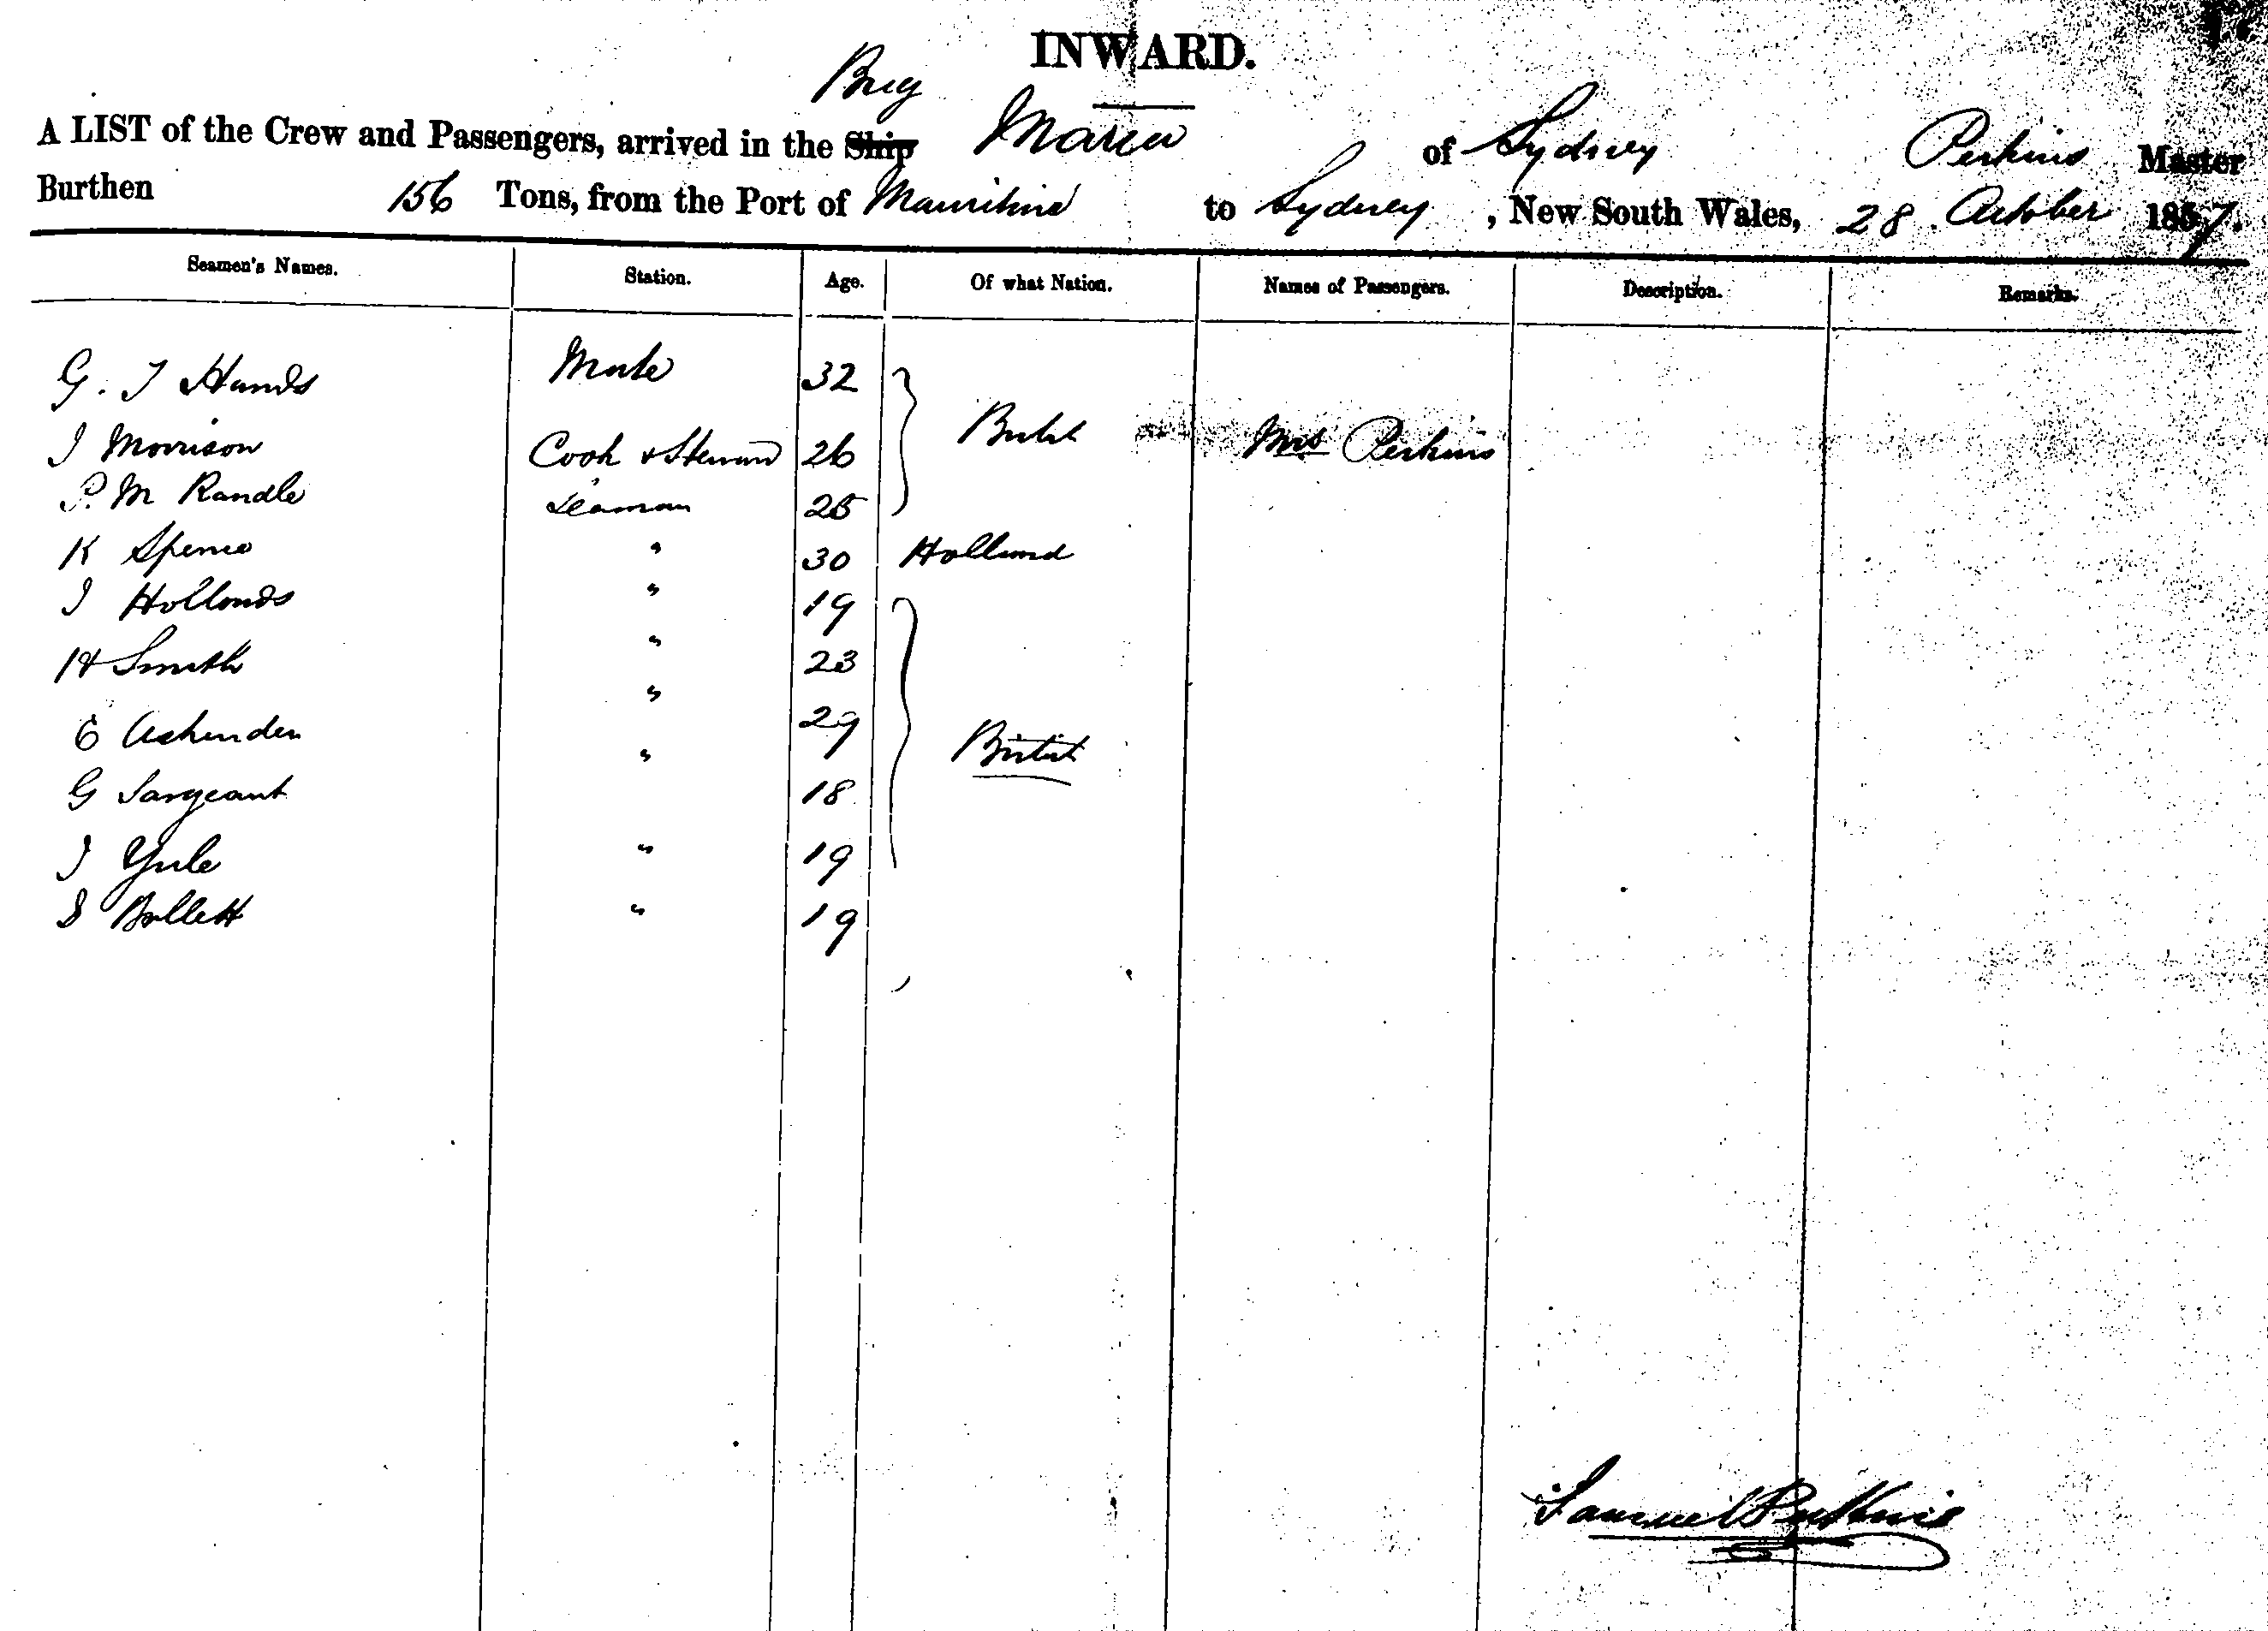 INWARD.
Brig
A LIST of the Crew and Passengers, arrived in the Ship Maria of Sydney Perkins Master
Burthen 156 Tons, from the Port of Mauritius to Sydney, New South Wales, 28. October 1857.
Seamen's Names. Station. Age. Of what Nation. Names of Passengers. Description. Remarks.
G. T Hands Mate 32
J Morrison Cook & Steward 26 British Mrs Perkins
P. M Randle Seaman 25
K Spence " 30 Holland
J Hollonds " 19
H Smith " 23
E Ashenden " 29 British
G Sargeant " 18
J Yule " 19
S Bollett " 19
Samuel Perkins